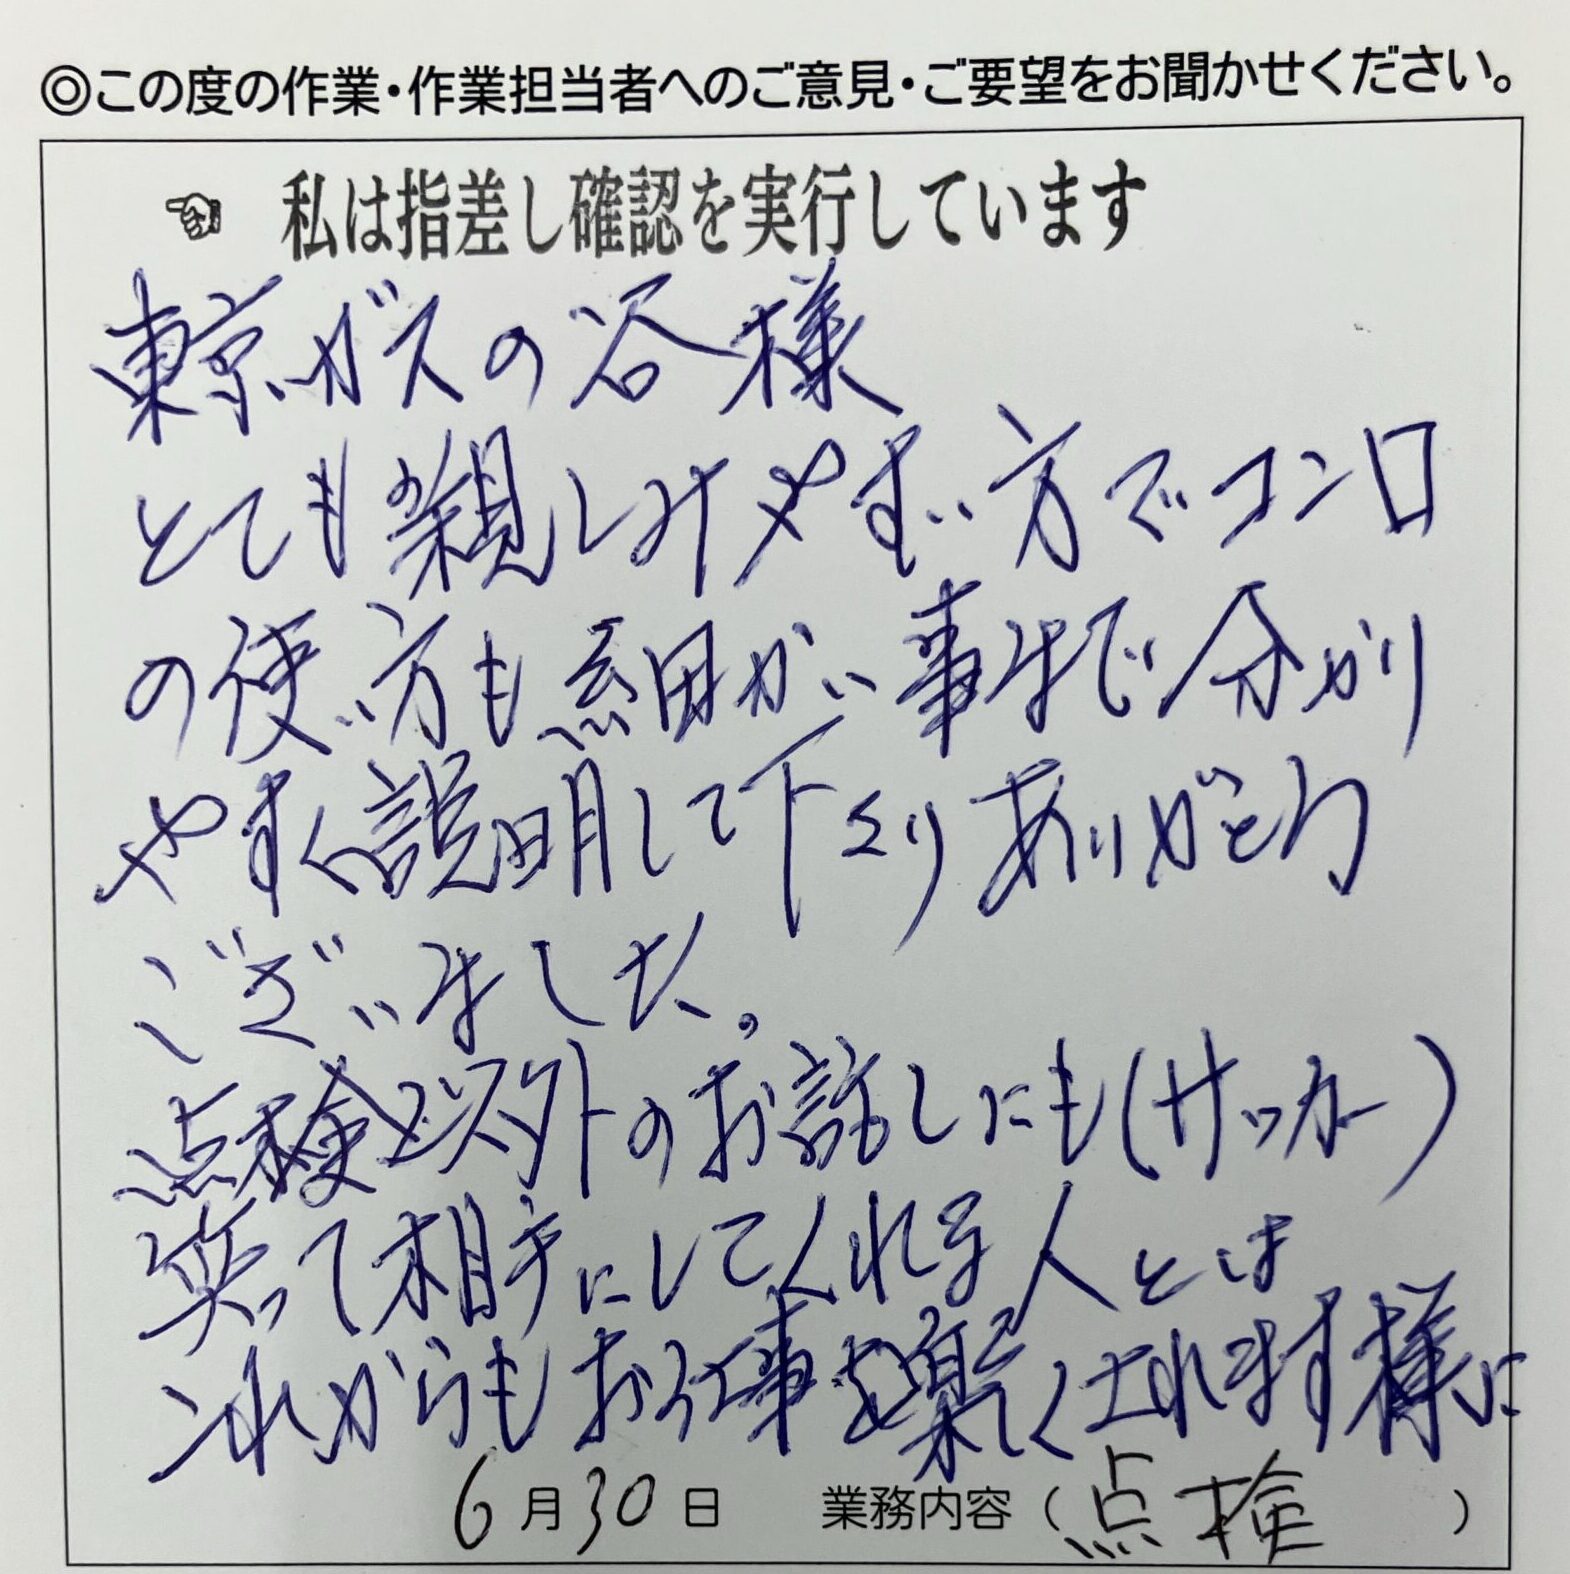 ◎この度の作業・作業担当者へのご意見・ご要望をお聞かせください。
☜ 私は指差し確認を実行しています
東京ガスの谷様
とても親しみやすい方でコンロ
の使い方も細かい事まで分かり
やすく説明して下さり ありがとう
ございました。
点検以外のお話しにも(サッカー)
笑って相手にしてくれる人とは
これからもお仕事を楽しくされます様に
6月30日 業務内容(点検)